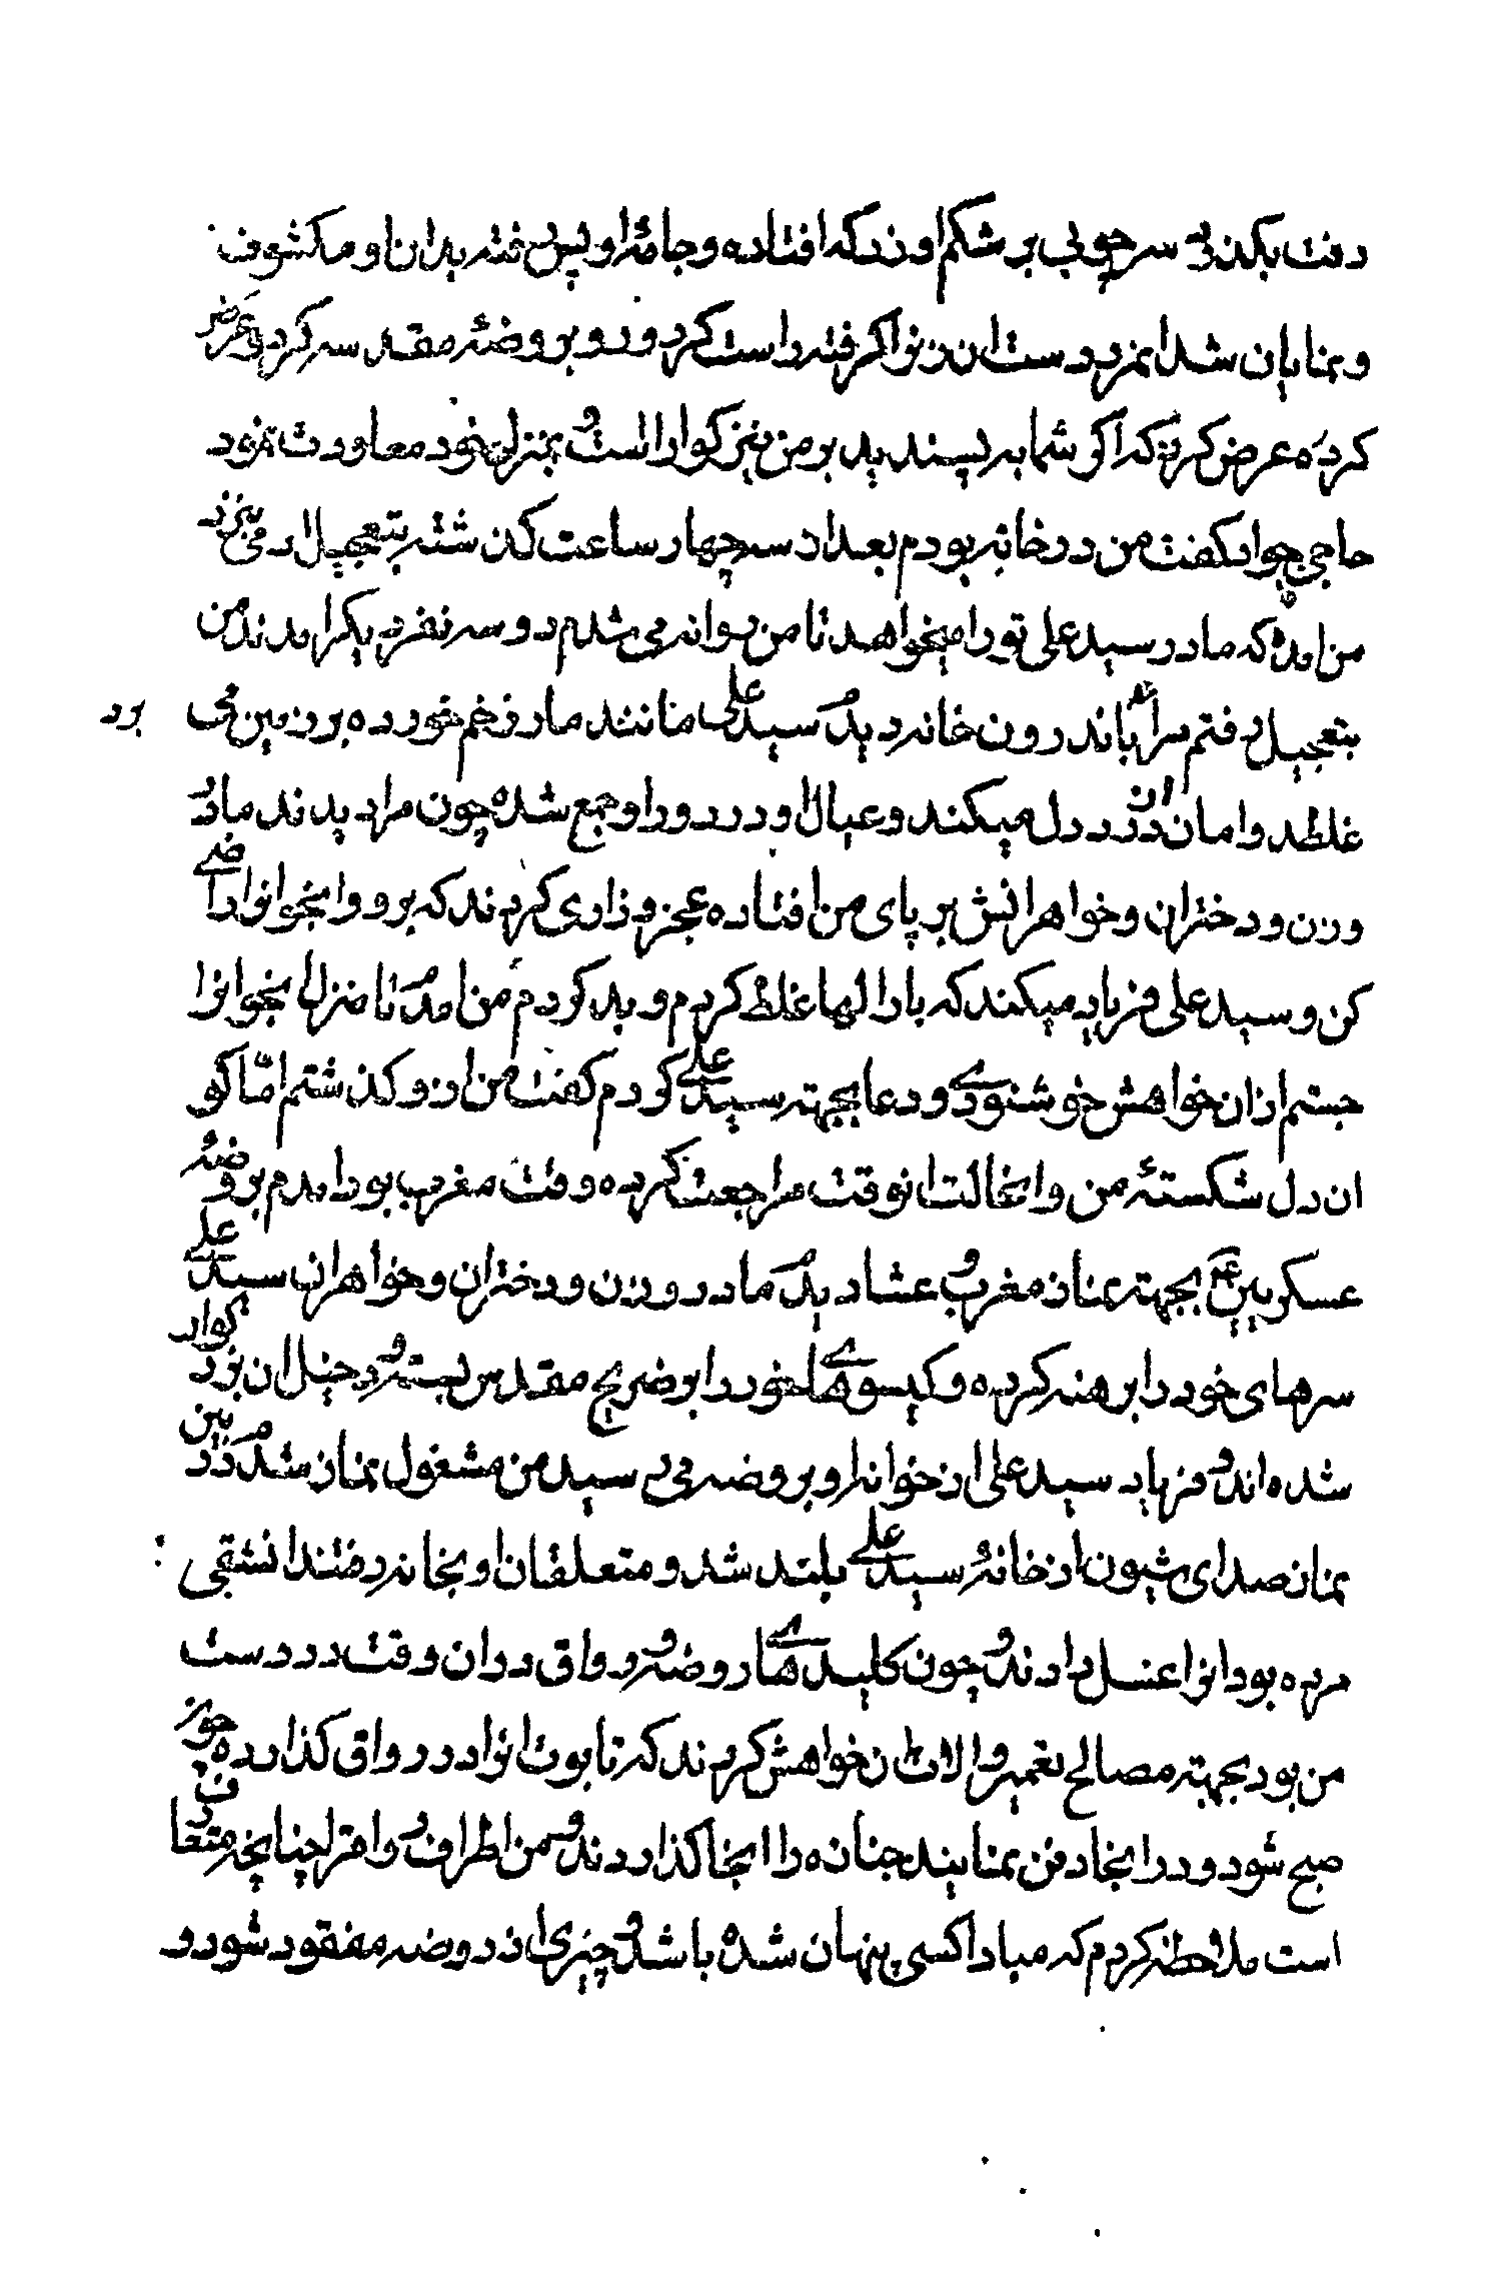 رفت بگذرد سر چوبی بر شکم او زد که افتاده و جامهٔ او پس رفته بدان او مکشوف
و نمایان شد ان مرد دست ان زنرا گرفته راست کرد و رو بروضهٔ مقدسه کرده عرض
کرده عرض کرد که اگر شما به پسندید بر من نیز گوارا است و بمنزل خود معاودت نمود
حاجی جواد گفت من در خانه بودم بعد از سه چهار ساعت گذشته بتعجیل ادمی بنزد
من امده که مادر سید علی تو را میخواهد تا من روانه می شدم دو سه نفر دیگر امدند من
بتعجیل رفتم مرا باندرون خانه برد دیدم سید علی مانند مار زخم خورده بر زمین می
غلطد و امان از درد دل میکند و عیال او در دور او جمع شده چون مرا دیدند مادر
و زن و دختران و خواهرانش بر پای من افتاده عجز و زاری کردند که برو و انجوانرا راضی
کن و سید علی فریاد میکند که بار الها غلط کردم و بد کردم من امدم تا منزل انجوانرا
جستم از ان خواهش خوشنودی و دعا بجهته سید علی کردم گفت من از و گذشتم اما کو
ان دل شکستهٔ من و انحالت انوقت مراجعت کرده وقت مغرب بود امدم بروضه
عسکریین ع بجهته نماز مغرب و عشا دیدم مادر و زن و دختران و خواهران سید علی
سرهای خود را برهنه کرده و گیسوهای خود را بر ضریح مقدس بسته و دخیل ان بزرگوار
شده اند و فریاد سید علی از خوانه او بروضه می رسید من مشغول نماز شدم در بین
نماز صدای شیون از خانهٔ سید علی بلند شد و متعلقان او بخانه رفتند انشقی
مرده بود انرا غسل دادند و چون کلیدهای روضه و رواق در ان وقت در دست
من بود بجهته مصالح تعمیر و الات ان خواهش کردند که تابوت انرا در رواق گذارده چون
صبح شود در انجا دفن نمایند جنازه را انجا گذاردند و من اطراف را چنانچه متعارف
است ملاحظه کردم که مبادا کسی پنهان شده باشد و چیزی از روضه مفقود شود و